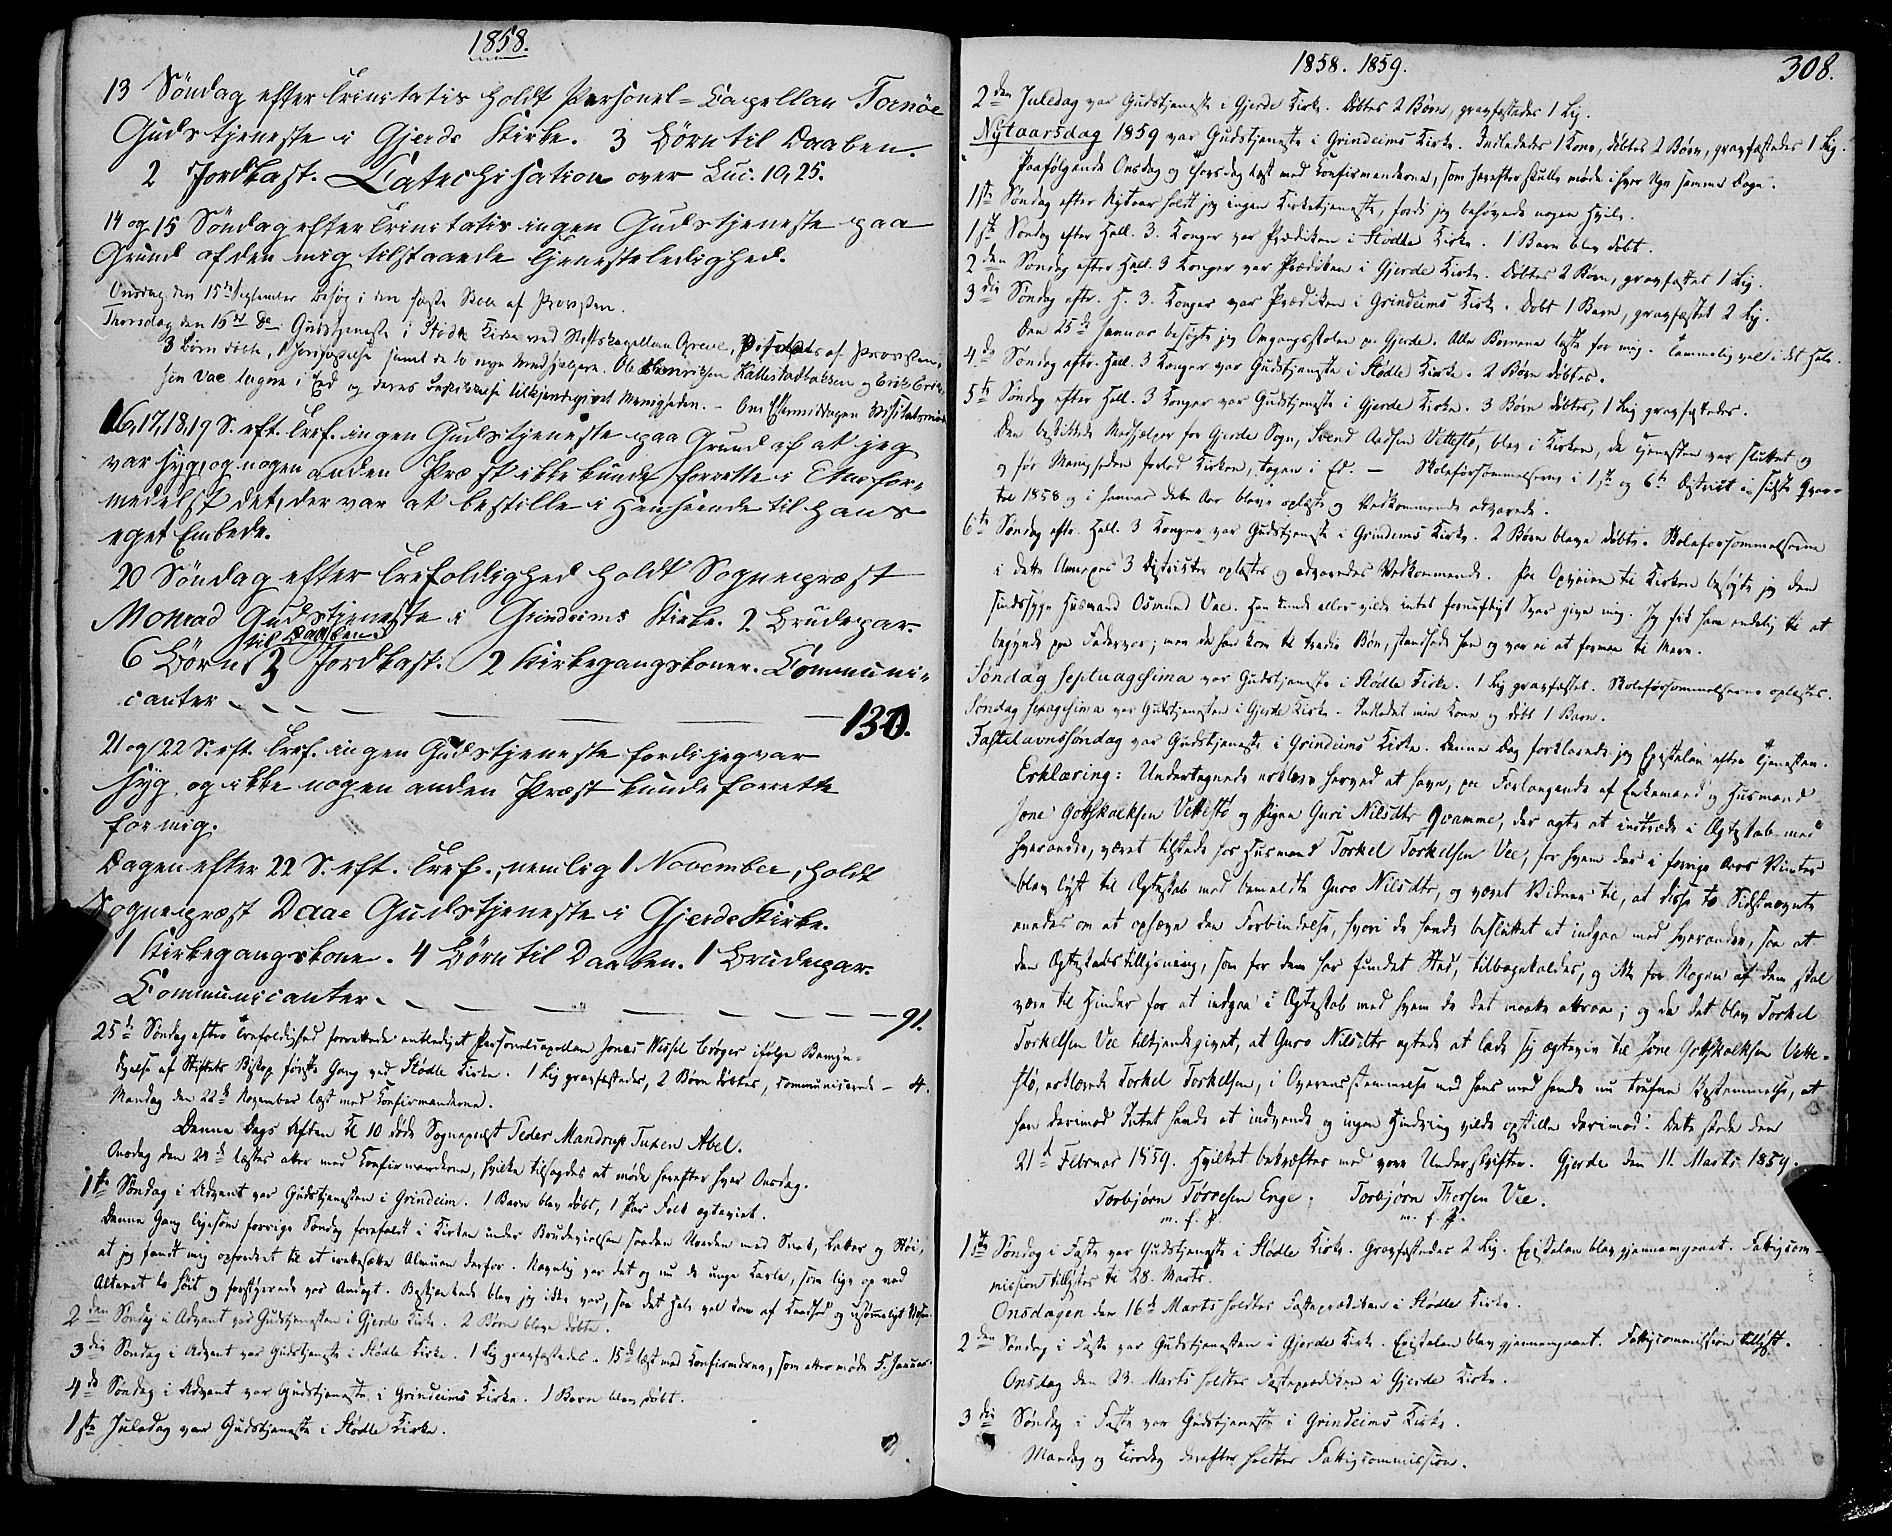 1858.
13 Söndag efter Trinitatis holdt Personel=Capellan Tornöe
Gudstjeneste i Gjerde Kirke. 3 Börn til Daaben.
2 Jordkast. Catechisation over Luc. 10, 25.
14 og 15 Söndag efter Trinitatis ingen Gudstjeneste paa
Grund af den mig tilstaaede Tjenesteledighed.
Onsdag den 15de September besøg i den faste Skole af Provsten.
Thorsdag den 16de Do: Gudstjeneste i Stødle Kirke ved Stiftskapellan Greve, af Provsten,
3 Børn døbte, 1 samt de to nye Medhjælpere, Ole Henriksen Kallestadbakken og Erik Erik-
sen Vae tagne i Ed og deres Beskikkelse tilkjendegivet Menigheden. – Om Eftermiddagen
16, 17, 18, 19 S. eft. Tref. ingen Gudstjeneste paa Grund af at jeg
var syg, og nogen anden Præst ikke kunde forrette i Etne for-
medelst det, der var at bestille i Henseende til hans
eget Embede.
20 Söndag efter Trefoldighed holdt Sognepræst
Monrad Gudstjeneste i Grindeims Kirke. 2 Brudepar.
6 Börn til Daaben 3 Jordkast. 2 Kirkegangskoner. Communi-
canter – – – – 130.
21 og 22 S. eft. Tref. ingen Gudstjeneste fordi jeg var
syg, og ikke nogen anden Præst kunde forrette
for mig.
Dagen efter 22 S. eft. Tref., nemlig 1 November, holdt
Sognepræst Daae Gudstjeneste i Gjerde Kirke.
1 Kirkegangskone. 4 Börn til Daaben. 1 Brudepar.
Communicanter. – – – – 91.
25de Søndag efter Trefoldighed forrettede Personelcapellan Jonas Wessel Crøger ifølge Bemyn-
digelse af Stiftets Biskop første Gang ved Stødle Kirke. 1 Lig gravfæstedes, 2 Børn døbtes, communicerede – 4.
Mandag den 22de November læst med Konfirmanderne.
Denne Dags Aften Kl 10 døde Sognepræst Peder Mandrup Tuxen Abel.
Onsdag den 24de læstes atter med Konfirmanderne, hvilke tilsagdes at møde herefter hver Onsdag.
1ste Søndag i Advent var Gudstjenesten i Grindeim. 1 Barn blev døbt, 1 Par Folk ægteviet.
Denne Gang ligesom forrige Søndag forefaldt i Kirken under Brudevielsen saadan Uorden med Snak, Latter og Støi,
at jeg fandt mig opfordret til at irettesætte Almuen derfor. Navnlig var det og nu de unge Karle, som lige op ved
Alteret lo høit og forstyrrede vor Andagt. Beskjænkede blev jeg ikke var, saa det hele vel kom af Kaadhed og usømmeligt Væsen.
2den Søndag i Advent var Gudstjenesten i Gjerde Kirke. 2 Børn bleve døbte.
3die Søndag i Advent var Gudstjeneste i Stødle Kirke. 1 Lig gravfæstedes. 15de læst med Konfirmderne, som atter møde 5. Januar.
4de Søndag i Advent var Gudstjeneste i Grindeims Kirke. 1 Barn blev døbt.
1ste Juledag var Gudstjeneste i Stødle Kirke.
1858. 1859.
308.
2den Juledag var Gudstjeneste i Gjerde Kirke. Døbtes 2 Børn, gravfæstedes 1 Lig.
Nytaarsdag 1859 var Gudstjeneste i Grindeims Kirke. Indlededes 1 Kone, døbtes 2 Børn, gravfæstedes 1 Lig.
Paafølgende Onsdag og Thorsdag læst med Konfirmanderne, som herefter skulle møde i hver Uge samme Dage.
1ste Søndag efter Nytaar holdt jeg ingen Kirketjeneste, fordi jeg behøvede nogen Hvile.
1ste Søndag efter Hell. 3. Konger var Prædiken i Stødle Kirke. 1 Barn blev døbt.
2den Søndag efter Hell. 3 Konger var Prædiken i Gjerde Kirke. Døbtes 2 Børn, gravfæstet 1 Lig.
3die Søndag eftr. H. 3. Konger var Prædiken i Grindeims Kirke. Døbt 1 Barn, gravfæstet 2 Lig.
Den 25de Januar besøgte jeg Omgangsskolen paa Gjerde. Alle Børnene læste for mig. Temmelig vel i det Hele.
4de Søndag eftr. Hell. 3 Konger var Gudstjeneste i Stødle Kirke. 2 Børn døbtes.
5te Søndag efter Hell. 3 Konger var Gudstjeneste i Gjerde Kirke. 3 Børn døbtes, 1 Lig gravfæstedes.
Den beskikkede Medhjælper for Gjerde Sogn, Svend Aadsen Vettestø, blev i Kirken, da Tjenesten var sluttet og
og før Menigheden forlod Kirken, tagen i Ed. – Skoleforsømmelserne i 1ste og 6te District i sidste Qvar-
tal 1858 og i Januar dette Aar bleve oplæste og Vedkommende advarede.
6te Søndag eftr. Hell. 3 Konger var Gudstjeneste i Grindeims Kirke. 2 Børn bleve døbte. Skoleforsømmelserne
i dette Annexes 3 Districter oplæstes og advaredes Vedkommende. Paa Opveien til Kirken besøgte jeg den
sindssyge Husmand Osmund Vae. Han kunde eller vilde intet fornuftigt Svar give mig. Jeg fik ham endelig til at
begynde paa Fadervor; men da han kom til tredie Bøn, standsede han og var ei at formaa til Mere.
Søndag Septuagesima var Gudstjeneste i Stødle Kirke. 1 Lig gravfæstet. Skoleforsømmelserne oplæstes.
Søndag Sexagesima var Gudstjenesten i Gjerde Kirke. Indledet min Kone og døbt 1 Barn.
Fastelavnssøndag var Gudstjeneste i Grindeims Kirke. Denne Dag forklarede jeg Epistelen efter Tjenesten.
Erklæring: Undertegnede erklære herved at have, paa Forlangende af Enkemand og Husmand
Jone Gotskalksen Vettestø og Pigen Guri Nilsdtr Qvamme, der agte at indtræde i Ægteskab med
hverandre, været tilstede hos Husmand Torkel Torkelsen Vee, for hvem der i forrige Aars Vinter
blev lyst til Ægteskab med bemeldte Guro Nilsdtr, og været Vidner til, at disse to Sidstnævnte
enedes om at ophæve den Forbindelse, hvori de havde besluttet at indgaa med hverandre, saa at
den Ægteskabstillysning, som for dem har fundet Sted, tilbagekaldes, og ikke for Nogen af dem skal
være til Hinder for at indgaa i Ægteskab med hvem de det maatte attraa; og da det blev Torkel
Torkelsen Vee tilkjendegivet, at Guro Nilsdtr agtede at lade sig ægtevie til Jone Gotskalksen Vette-
stø, erklærede Torkel Torkelsen, i Overensstemmelse med hans med hende nu trufne Bestemmelse, at
han derimod Intet havde at indvende og ingen Hindring vilde opstille derimod. Dette skede den
21de Februar 1859. Hvilket bekræftes med vore Underskrifter. Gjerde den 11. Marts 1859.
Torbjørn Tørresen Enge. Torbjørn Thorsen Vee.
m. f. P. m. f. P.
1ste Søndag i Faste var Gudstjeneste i Stødle Kirke. Gravfæstedes 2 Lig. Epistelen blev gjennemgaaet. Fattigcom-
mission tillystes til 28. Marts.
Onsdagen den 16de Marts holdtes Fasteprædiken i Stødle Kirke.
2den Søndag i Faste var Gudstjenesten i Gjerde Kirke. Epistelen blev gjennemgaaet. Fattigcommission tillyst.
Onsdag den 23. Marts holdtes Fasteprædiken i Gjerde Kirke.
3die Søndag i Faste var Gudstjeneste i Grindeims Kirke.
Mandag og Tirsdag derefter holdtes Fattigcommission.